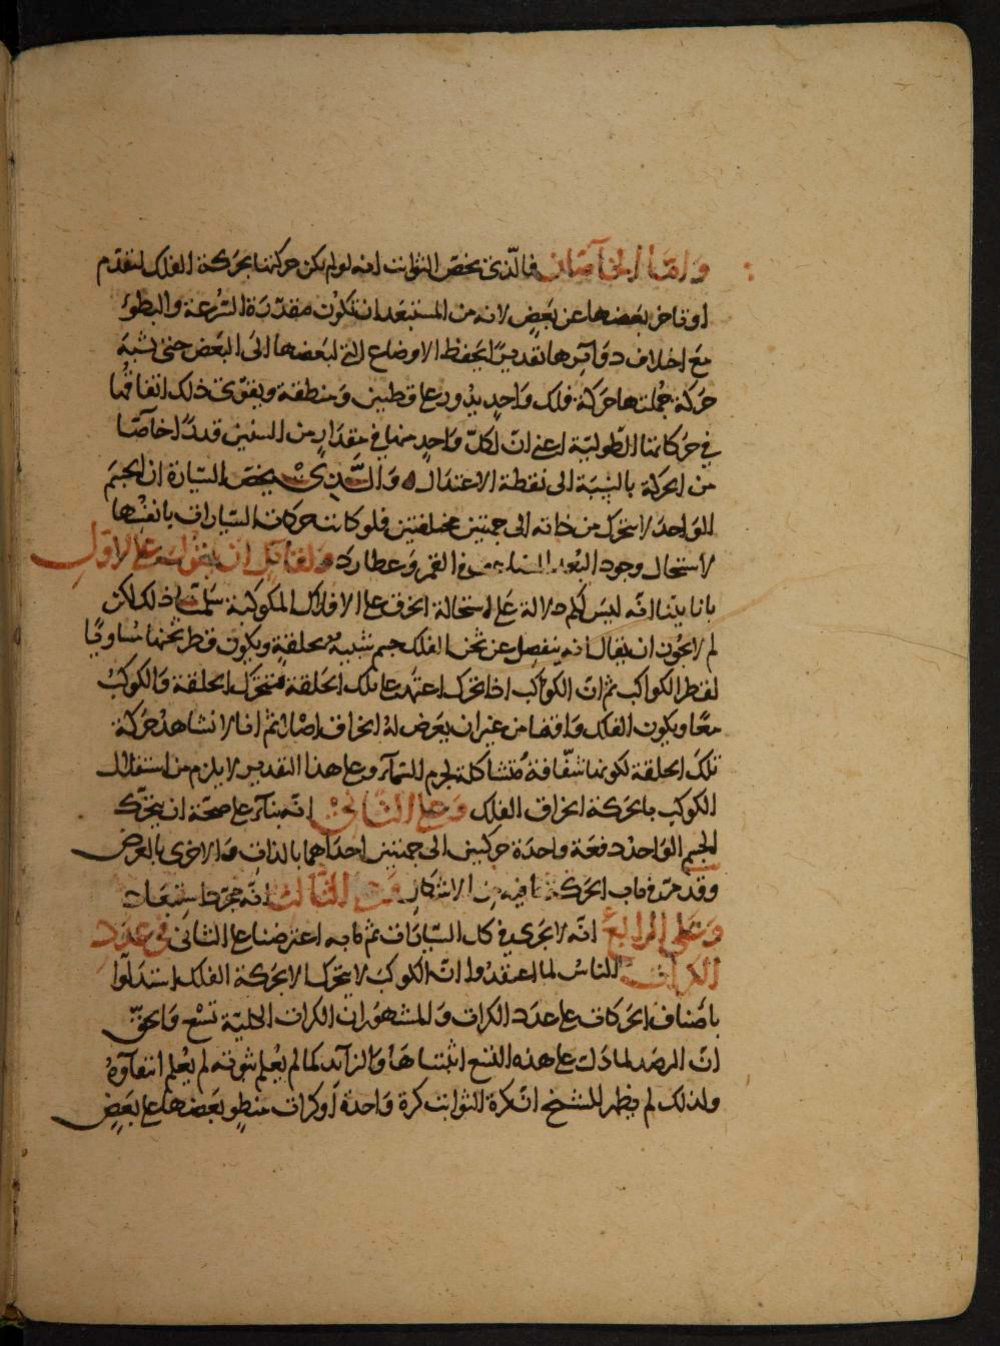 وامّا الخاصّان فالّذى يخصّ الثوابت انه لو لم يكن حركتها بحركة الفلك لتقدّم
او تاخر بعضها عن بعض لانه من المستبعد ان تكون مقدّرة السّرعة والبطؤ
مع اختلاف دوآئرها تقديرًا يحفظ الاوضاع التى لبعضها الى البعض حتى تشبه
حركة جملتها حركة فلك واحد يدور على قطبين ومنطقة ويقوّى ذلك اتفاقها
فى حركاتها الطّوليّة اعنى انّ لكلّ واحد منها فى مقدار من السنين قدرًا خاصّا
من الحركة بالنسبة الى نقطة الاعتدال والّذى يخصّ السّيارة ان الجسم
الواحد لا يتحرّك من ذاته الى جهتين مختلفتين فلو كانت حركات السيّارات بانفسها
لاستحال وجود البُعد فى القمر وعطارد ولقائل ان يقول على الاوّل
بانا بيّنا انّه ليس لكم دلالة على استحالة الخرق على الافلاك المكوكبة سلّمنا ذلك لكن
لم لا يجوز ان يقال انه ينفصل عن ثخن الفلك جسم شبيه بحلقة ويكون قطر ثخنها مساويًا
لقطر الكواكب ثم انّ الكواكب اذا تحرّك اعتمد على تلك الحلقة فتتحرّك الحلقة والكوكب
معًا ويكون الفلك واقفا من غير ان يعرض له انخراق اصلا ثم انّا لا نشاهد حركة
تلك الحلقة لكونها شفّافة متشاكلة لجرم السّمآء وعلى هذا التقدير لا يلزم من استقلال
الكوكب بالحركة انخراق الفلك وعلى الثّانى انّه بنآء على صحّة ان يتحرّك
الجسم الواحد دفعة واحدة حركتين الى جهتين احداهما بالذات والاخرى بالعرض
وقد مرّ فى باب الحركة ما فيه من الاشكال الثّالث انّه مجرّد استبعاد
وعلى الرابع انّه لا يجرى فى كل السّيارات ثم ما به اعترضنا على الثانى فى عدد
الكرات الناس لما اعتقدوا انّ الكوكب لا يتحرك الا بحركة الفلك استدلّوا
باصناف الحركات على عدد الكرات والمشهور ان الكرات الكليّة تسع والحقّ
انّ الرصد لما دلّ على هذه التسع اثبتناها والزآئد كما لم يُعلم ثبوته لم يُعلم انتفآؤه
ولذلك لم يظهر للشيخ انّ كرة الثوابت كرة واحدة او كرات منطو بعضها على بعض